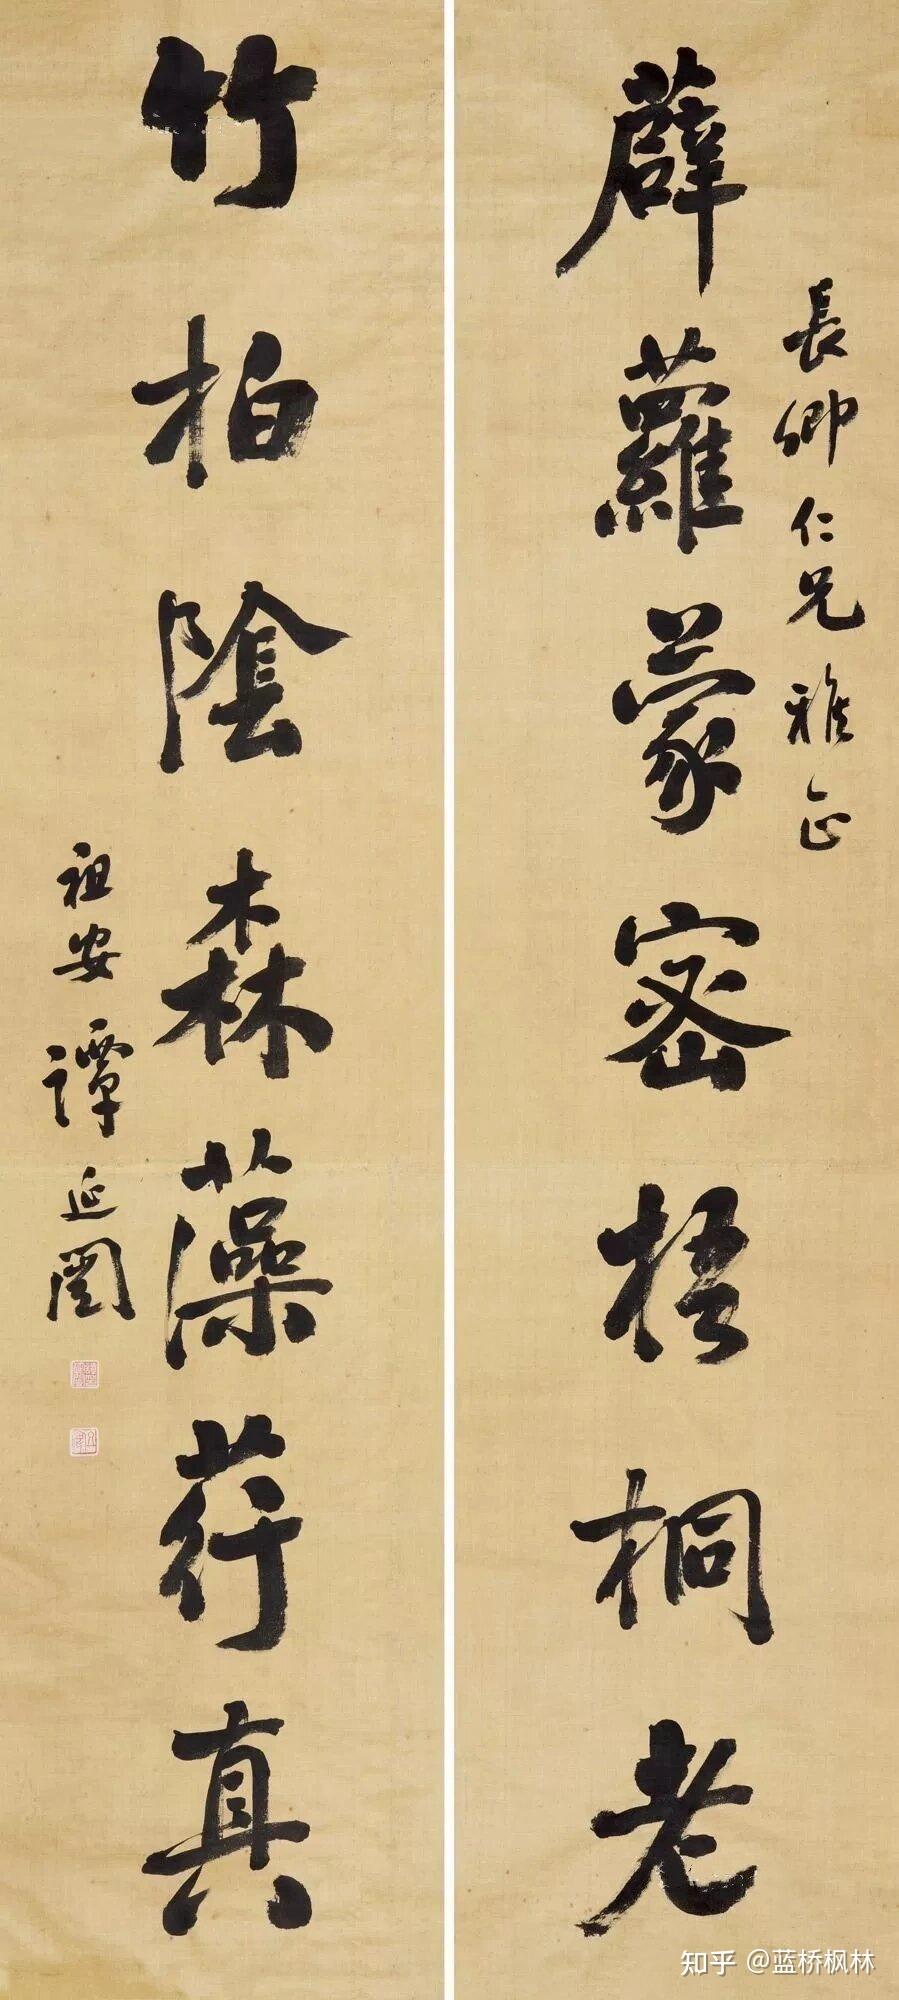 長卿仁兄雅正
薜蘿蒙密梧桐老
竹柏陰森藻荇真
祖安譚延闓
知乎 @蓝桥枫林